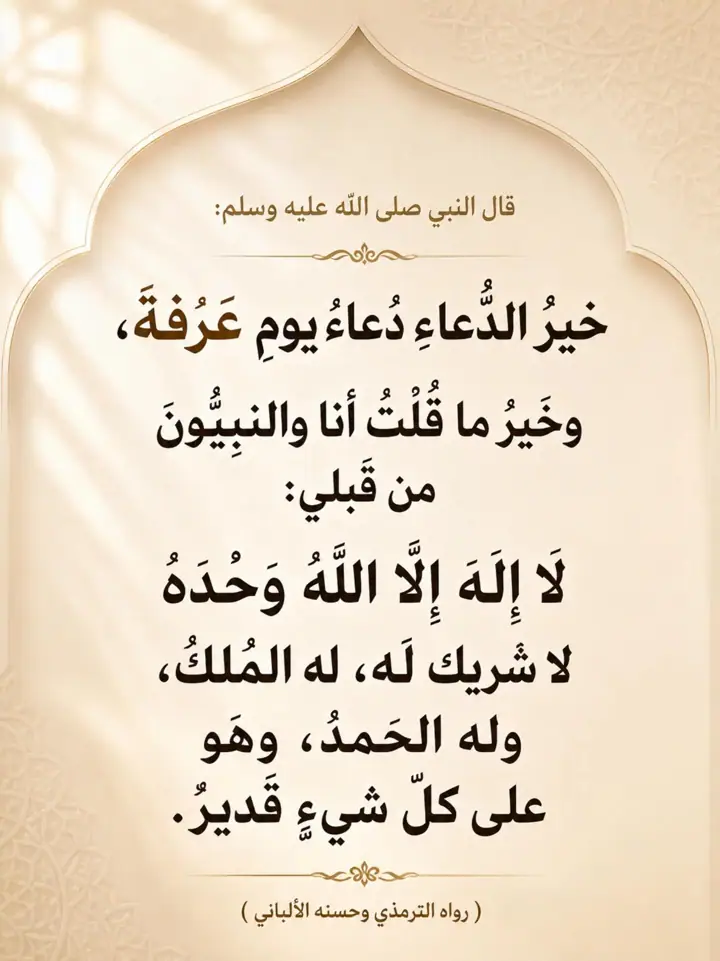 قال النبي صلى الله عليه وسلم:
خيرُ الدُّعاءِ دُعاءُ يومِ عَرُفةَ،
وخَيرُ ما قُلْتُ أنا والنبِيُّونَ
من قَبلي:
لَا إِلَهَ إِلَّا اللَّهُ وَحْدَهُ
لا شَريك لَه، له المُلكُ،
وله الحَمدُ، وهَو
على كلّ شيءٍَّ قَديرٌ.
( رواه الترمذي وحسنه الألباني )